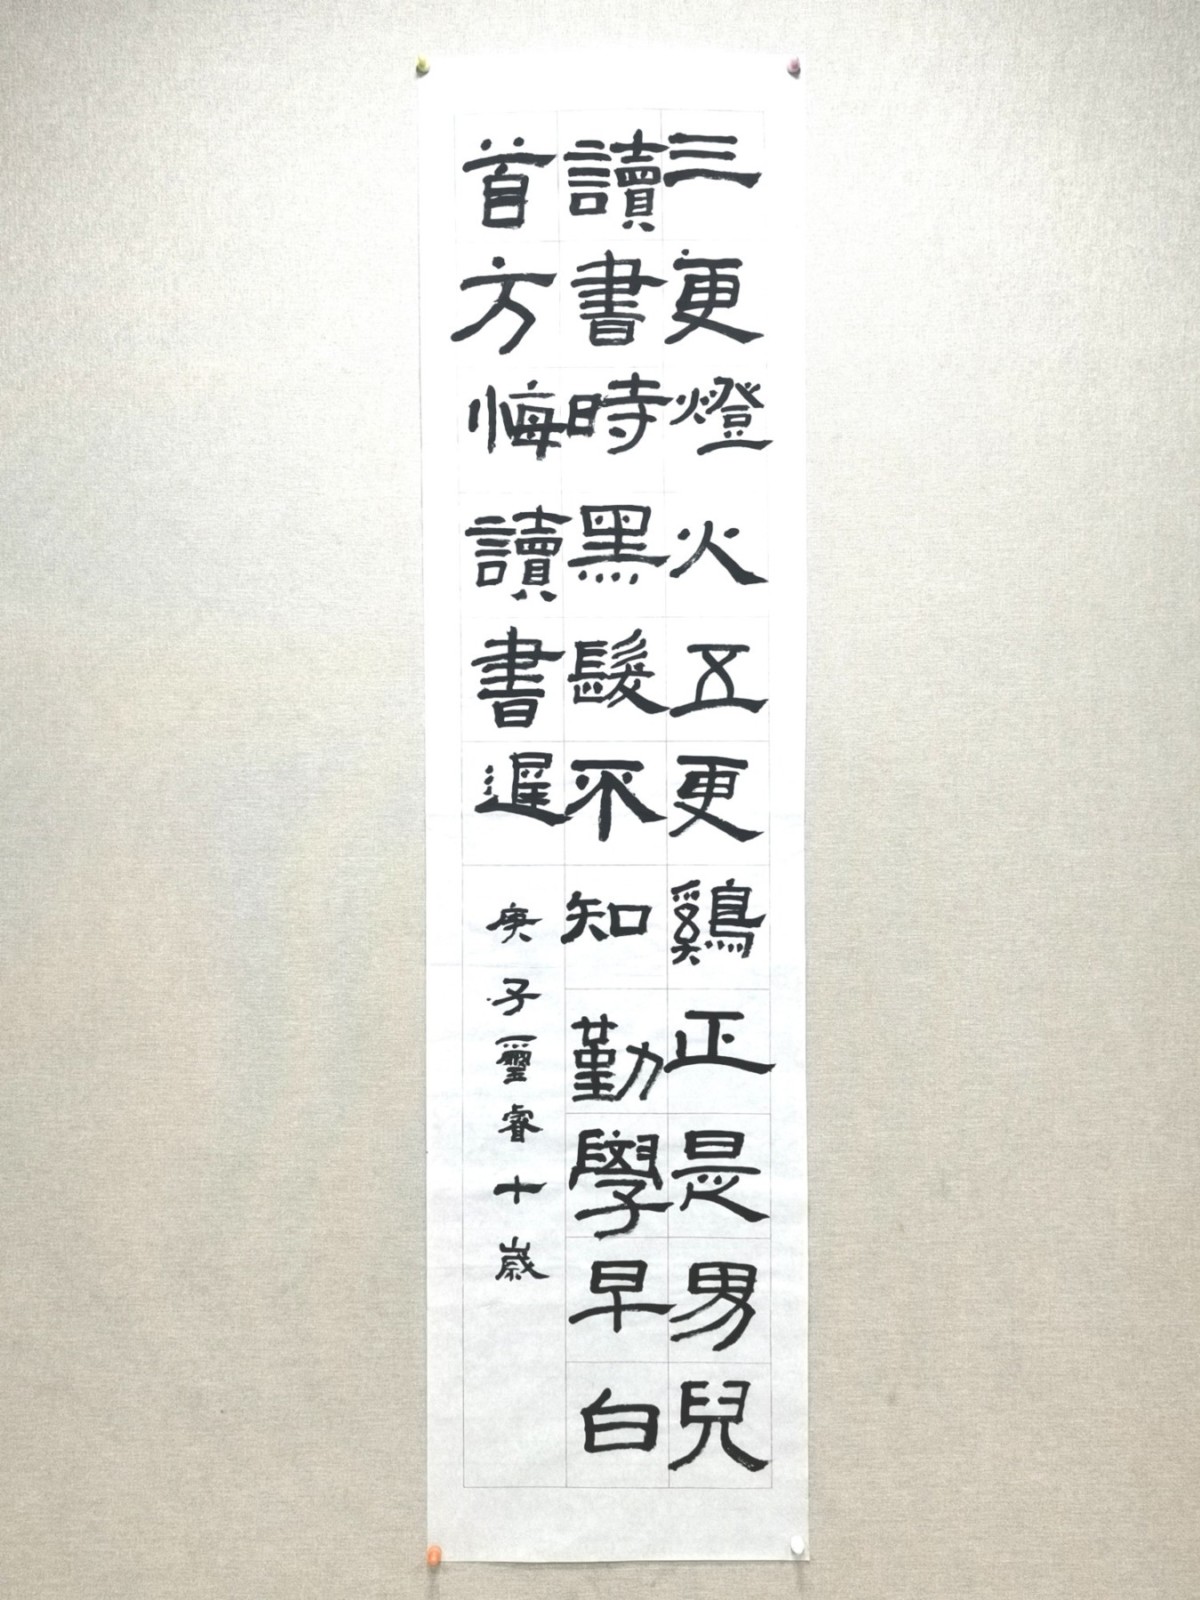 三更燈火五更鷄正是男兒
讀書時黑髮不知勤學早白
首方悔讀書遲
庚子璽睿十歲